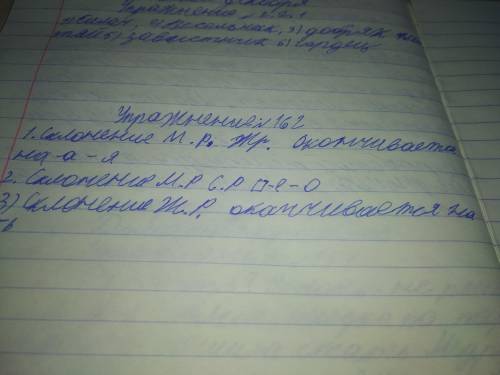 декабря
Упражнение
3) добряк
5) завистник 6) гордец
Упражнение 162
1. Склонение М.Р. Жр. оканчивается
на -а -я
2. Склонение М.Р С.Р □ -е -о
3) Склонение Ж.Р. оканчивается на
-ь